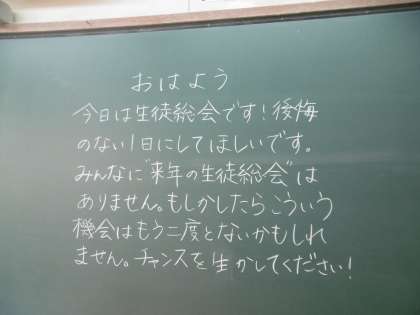 おはよう
今日は生徒総会です！後悔
のない1日にしてほしいです。
みんなに"来年の生徒総会"は
ありません。もしかしたらこういう
機会はもう二度とないかもしれ
ません。チャンスを生かしてください！